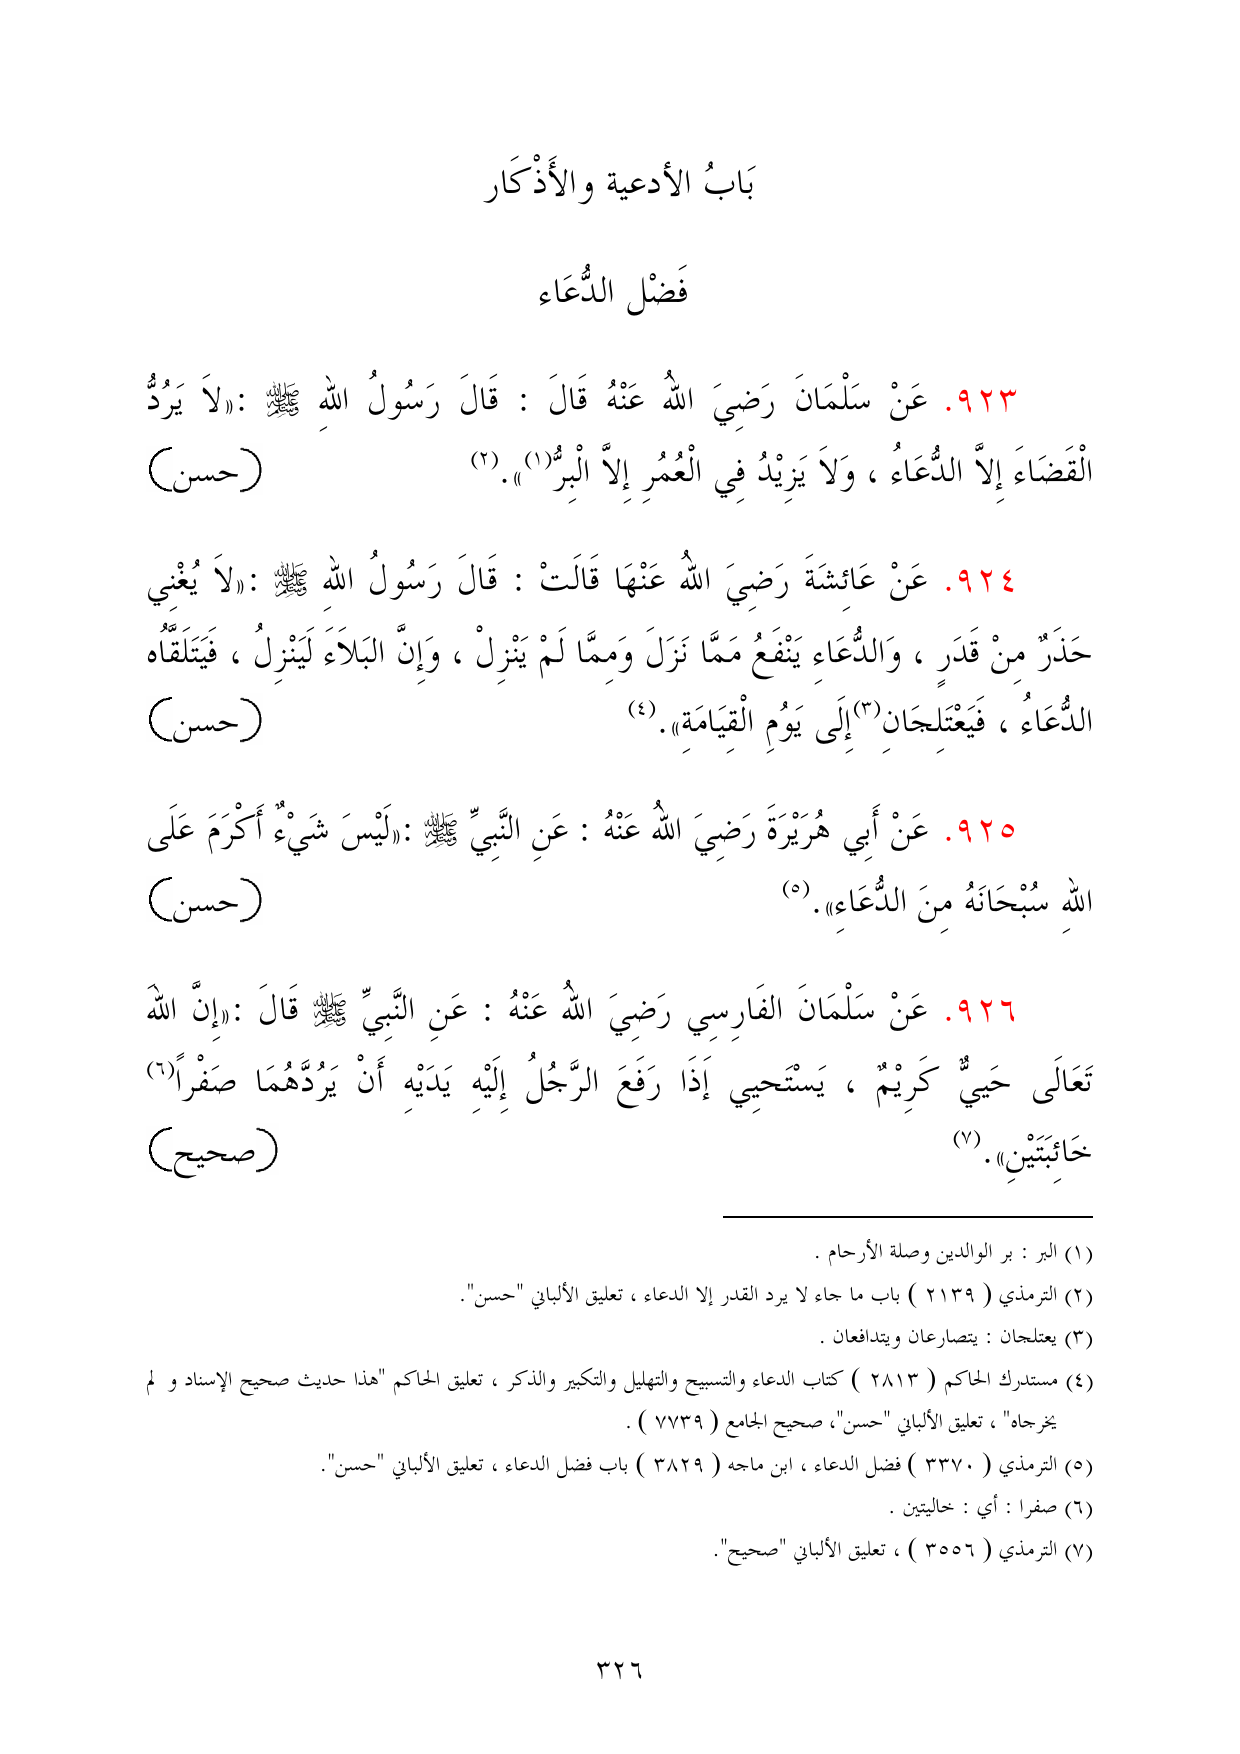 بَابُ الأدعية والأَذْكَار
فَضْل الدُّعَاء
٩٢٣. عَنْ سَلْمَانَ رَضِيَ اللهُ عَنْهُ قَالَ : قَالَ رَسُولُ اللهِ ﷺ :«لاَ يَرُدُّ
الْقَضَاءَ إِلاَّ الدُّعَاءُ ، وَلاَ يَزِيْدُ فِي الْعُمُرِ إِلاَّ الْبِرُّ(١)».(٢) (حسن)
٩٢٤. عَنْ عَائِشَةَ رَضِيَ اللهُ عَنْهَا قَالَتْ : قَالَ رَسُولُ اللهِ ﷺ :«لاَ يُغْنِي
حَذَرٌ مِنْ قَدَرٍ ، وَالدُّعَاءِ يَنْفَعُ مَمَّا نَزَلَ وَمِمَّا لَمْ يَنْزِلْ ، وَإِنَّ البَلاَءَ لَيَنْزِلُ ، فَيَتَلَقَّاُه
الدُّعَاءُ ، فَيَعْتَلِجَانِ(٣)إِلَى يَوُمِ الْقِيَامَةِ».(٤) (حسن)
٩٢٥. عَنْ أَبِي هُرَيْرَةَ رَضِيَ اللهُ عَنْهُ : عَنِ النَّبِيِّ ﷺ :«لَيْسَ شَيْءٌ أَكْرَمَ عَلَى
اللهِ سُبْحَانَهُ مِنَ الدُّعَاءِ».(٥) (حسن)
٩٢٦. عَنْ سَلْمَانَ الفَارِسِي رَضِيَ اللهُ عَنْهُ : عَنِ النَّبِيِّ ﷺ قَالَ :«إِنَّ اللهَ
تَعَالَى حَيِيٌّ كَرِيْمٌ ، يَسْتَحيِي إَذَا رَفَعَ الرَّجُلُ إِلَيْهِ يَدَيْهِ أَنْ يَرُدَّهُمَا صَفْراً(٦)
خَائِبَتَيْنِ».(٧) (صحيح)
(١) البر : بر الوالدين وصلة الأرحام .
(٢) الترمذي ( ٢١٣٩ ) باب ما جاء لا يرد القدر إلا الدعاء ، تعليق الألباني "حسن".
(٣) يعتلجان : يتصارعان ويتدافعان .
(٤) مستدرك الحاكم ( ٢٨١٣ ) كتاب الدعاء والتسبيح والتهليل والتكبير والذكر ، تعليق الحاكم "هذا حديث صحيح الإسناد و لم
يخرجاه" ، تعليق الألباني "حسن"، صحيح الجامع ( ٧٧٣٩ ) .
(٥) الترمذي ( ٣٣٧٠ ) فضل الدعاء ، ابن ماجه ( ٣٨٢٩ ) باب فضل الدعاء ، تعليق الألباني "حسن".
(٦) صفرا : أي : خاليتين .
(٧) الترمذي ( ٣٥٥٦ ) ، تعليق الألباني "صحيح".
٣٢٦